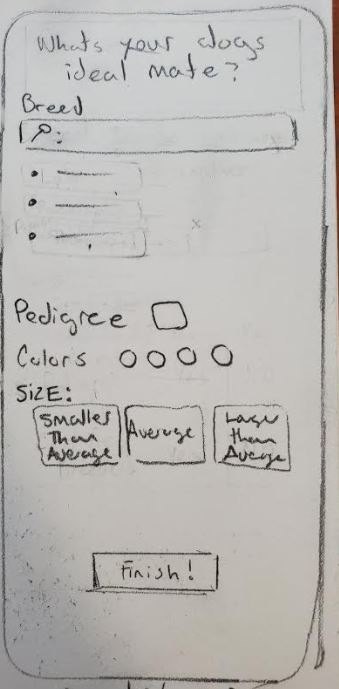 Whats your dogs
ideal mate?
Breed
Pedigree
Colors
SIZE:
Smaller
Than
Average
Average
Larger
than
Average
Finish!